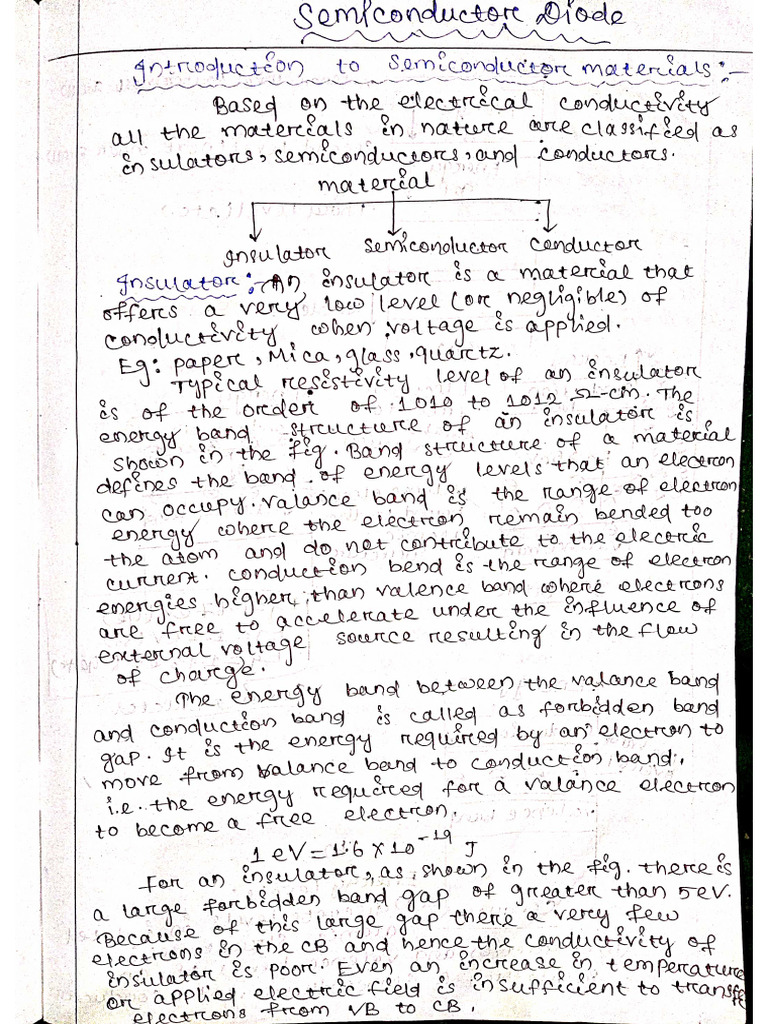 Semiconductor Diode
Introduction to Semiconductor materials:-
Based on the electrical conductivity
all the materials in nature are classified as
insulators, semiconductors, and conductors.
material
Insulator Semiconductor Conductor
Insulator:- An insulator is a material that
offers a very low level (or negligible) of
conductivity when voltage is applied.
Eg: paper, Mica, glass, quartz.
Typical resistivity level of an insulator
is of the order of 1010 to 1012 Ω-cm. The
energy band structure of an insulator is
shown in the fig. Band structure of a material
defines the band of energy levels that an electron
can occupy. valance band is the range of electron
energy where the electron remain bended too
the atom and do not contribute to the electric
current. conduction bend is the range of electron
energies higher than valence band where electrons
are free to accelerate under the influence of
external voltage source resulting in the flow
of charge.
The energy band between the valance band
and conduction band is called as forbidden band
gap. It is the energy required by an electron to
move from balance band to conduction band.
i.e. the energy required for a valance electron
to become a free electron.
1 eV = 1.6 × 10⁻¹⁹ J
For an insulator, as shown in the fig. there is
a large forbidden band gap of greater than 5eV.
Because of this large gap there a very few
electrons in the CB and hence the conductivity of
insulator is poor. Even an increase in temperature
or applied electric field is insufficient to transfe
electrons from VB to CB.